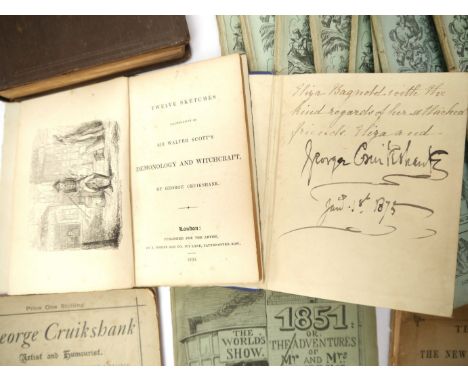 TWELVE SKETCHES
ILLUSTRATIVE OF
SIR WALTER SCOTT'S
DEMONOLOGY AND WITCHCRAFT,
BY GEORGE CRUIKSHANK.
London:
PUBLISHED FOR THE ARTIST,
Eliza Bagnold with the
kind regards of her attached
friends Eliza and
George Cruikshank
1875
Price One Shilling
George Cruikshank
Artist and Humourist.
THE
WORLD'S
SHOW.
1851:
OR,
THE ADVENTURES
OF
MR AND MRS
THE NEW